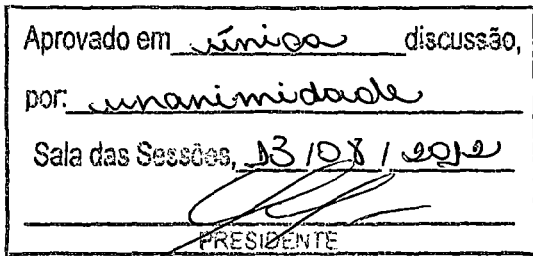 Aprovado em única discussão,
por: unanimidade
Sala das Sessões, 13/08/2012
PRESIDENTE